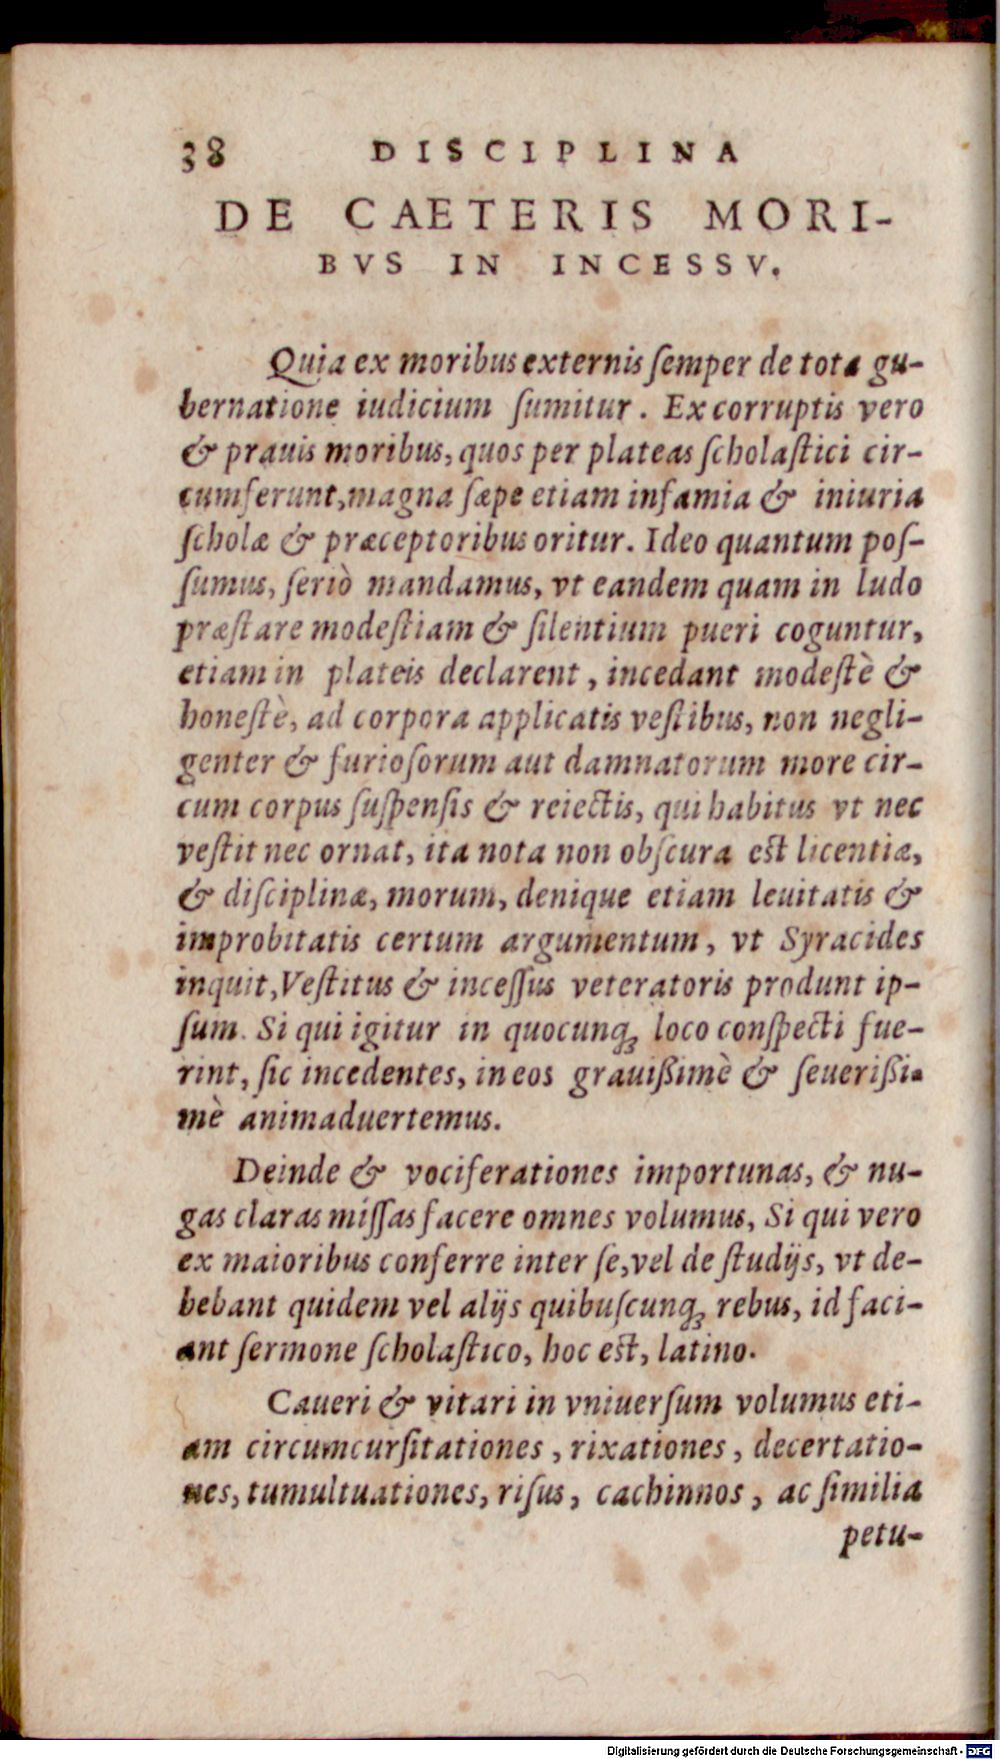 38 DISCIPLINA
DE CAETERIS MORI-
BVS IN INCESSV.
Quia ex moribus externis ſemper de tota gu-
bernatione iudicium ſumitur. Ex corruptis vero
& prauis moribus, quos per plateas ſcholaſtici cir-
cumferunt, magna ſæpe etiam infamia & iniuria
ſcholæ & præceptoribus oritur. Ideo quantum poſ-
ſumus, ſeriò mandamus, vt eandem quam in ludo
præſtare modeſtiam & ſilentium pueri coguntur,
etiam in plateis declarent, incedant modeſtè &
honeſtè, ad corpora applicatis veſtibus, non negli-
genter & furioſorum aut damnatorum more cir-
cum corpus ſuſpenſis & reiectis, qui habitus vt nec
veſtit nec ornat, ita nota non obſcura eſt licentiæ,
& diſciplinæ, morum, denique etiam leuitatis &
improbitatis certum argumentum, vt Syracides
inquit, Veſtitus & inceſſus veteratoris produnt ip-
ſum. Si qui igitur in quocunqꝫ loco conſpecti fue-
rint, ſic incedentes, in eos grauißimè & ſeuerißi-
mè animaduertemus.
Deinde & vociferationes importunas, & nu-
gas claras miſſas facere omnes volumus, Si qui vero
ex maioribus conferre inter ſe, vel de ſtudijs, vt de-
bebant quidem vel alijs quibuſcunqꝫ rebus, id faci-
ant ſermone ſcholaſtico, hoc eſt, latino.
Caueri & vitari in vniuerſum volumus eti-
am circumcurſitationes, rixationes, decertatio-
nes, tumultuationes, riſus, cachinnos, ac ſimilia
petu-
Digitalisierung gefördert durch die Deutsche Forschungsgemeinschaft - DFG